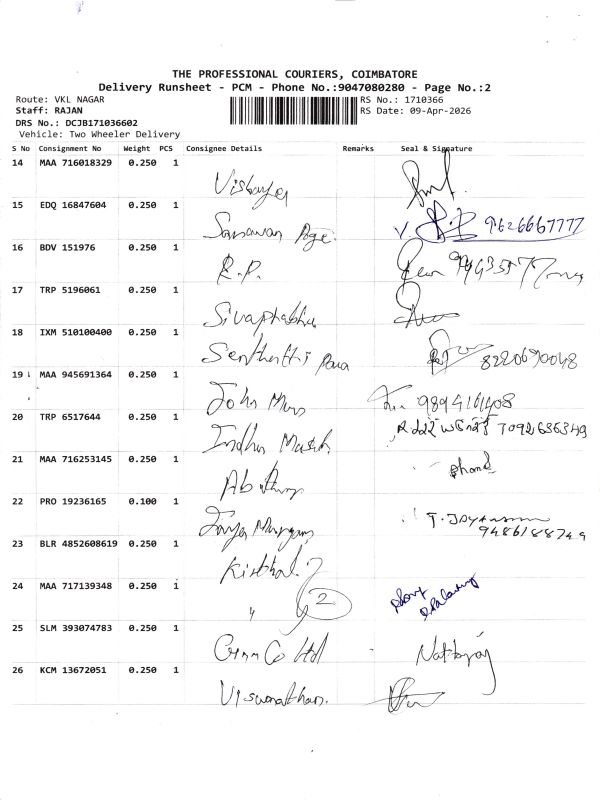 THE PROFESSIONAL COURIERS, COIMBATORE
Delivery Runsheet - PCM - Phone No.:9047080280 - Page No.:2
Route: VKL NAGAR
Staff: RAJAN
DRS No.: DCJB171036602
Vehicle: Two Wheeler Delivery
RS No.: 1710366
RS Date: 09-Apr-2026
S No Consignment No Weight PCS Consignee Details Remarks Seal & Signature
14 MAA 716018329 0.250 1
15 EDQ 16847604 0.250 1
9626667777
16 BDV 151976 0.250 1
R.P.
17 TRP 5196061 0.250 1
Sivaprabhu
18 IXM 510100400 0.250 1
8220690048
19 MAA 945691364 0.250 1
John
9894161408
20 TRP 6517644 0.250 1
Indhu
7092636349
21 MAA 716253145 0.250 1
Phone
22 PRO 19236165 0.100 1
Jaya Murugan
9486188749
23 BLR 4852608619 0.250 1
24 MAA 717139348 0.250 1
〃 2
25 SLM 393074783 0.250 1
Co Ltd Nattoraj
26 KCM 13672051 0.250 1
Viswanathan.